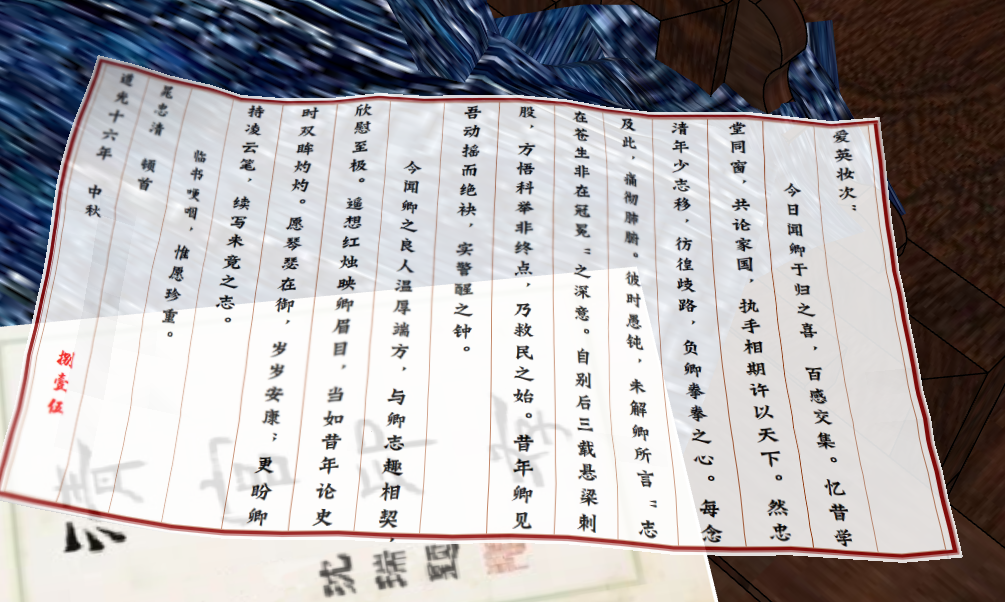 爱英妆次：
今日闻卿于归之喜，百感交集。忆昔学
堂同窗，共论家国，执手相期许以天下。然忠
清年少志移，彷徨歧路，负卿拳拳之心。每念
及此，痛彻肺腑。彼时愚钝，未解卿所言“志
在苍生非在冠冕”之深意。自别后三载悬梁刺
股，方悟科举非终点，乃救民之始。昔年卿见
吾动摇而绝袂，实警醒之钟。
今闻卿之良人温厚端方，与卿志趣相契，
欣慰至极。遥想红烛映卿眉目，当如昔年论史
时双眸灼灼。愿琴瑟在御，岁岁安康；更盼卿
持凌云笔，续写未竟之志。
临书哽咽，惟愿珍重。
晁忠清 顿首
道光十六年 中秋
捌壹伍